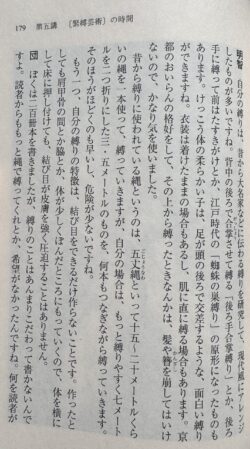 179　第五講　〔緊縛芸術〕の時間
明智　自分の縛りは、昔から大名家などに伝わる縛りを研究して、現代風にアレンジ
したものが多いですね。背中の後ろで合掌させて縛る「後ろ手合掌縛り」とか、後ろ
手に縛って前はたすきがけとか、江戸時代の「蜘蛛の巣縛り」の原形になったものも
あります。けっこう体の柔らかい子は、足が頭の後ろで交差するような、面白い縛り
ができますね。衣装は着たままの場合もあるし、肌に直に縛る場合もあります。京
都のおいらんの格好をして、その上から縛ったときなんかは、髪や簪を崩してはいけ
ないので、かなり気を使いました。
昔から縛りに使われている縄というのは、五尺縄といって十五・二十メートルくら
いの縄を一本使って、縛っていきますが、自分の場合は、もっと縛りやすく七メート
ル、その半分にした三・五メートルのものを、何本もつなぎながら縛っていきます。
そのほうがほどくのも早いし、危険が少ないですね。
もう一つ、自分の縛りの特徴は、結び目をできるだけ作らないことです。作ったと
しても肩甲骨の間とか脇とか、体が少しくぼんだところにもっていくので、体を横に
して床に押し付けても、結び目が皮膚を強く圧迫することはありません。
団　ぼくは二百冊本を書きましたが、縛りのことはあんまりこだわって書かないんで
すよ。読者からもっと縄で縛ってくれとか、希望がなかったんですね。何を読者が